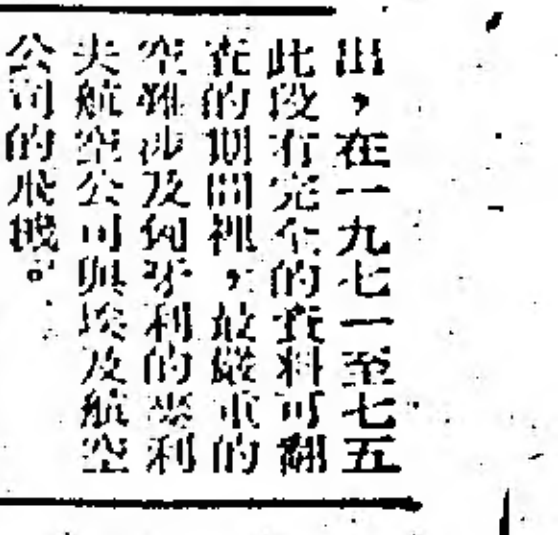 出，在一九七一至七五
此段有完全的資料可翻
查的期間裡，最嚴重的
空難涉及匈牙利的馬利
夫航空公司與埃及航空
公司的飛機。